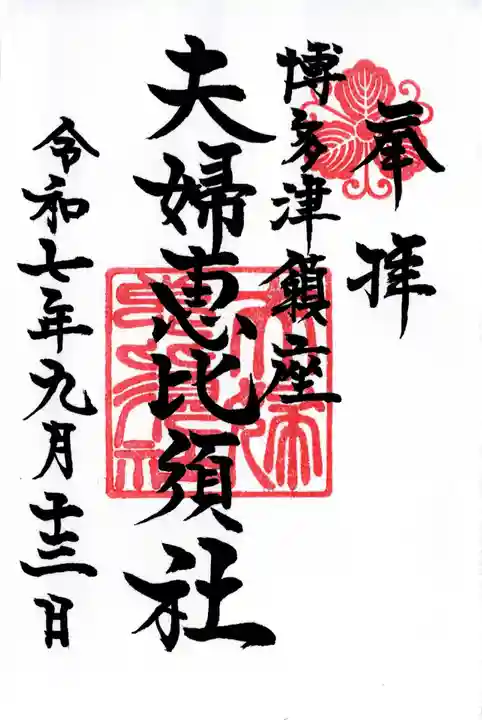 奉拝
博多津鎮座
夫婦恵比須社
令和七年九月十三日